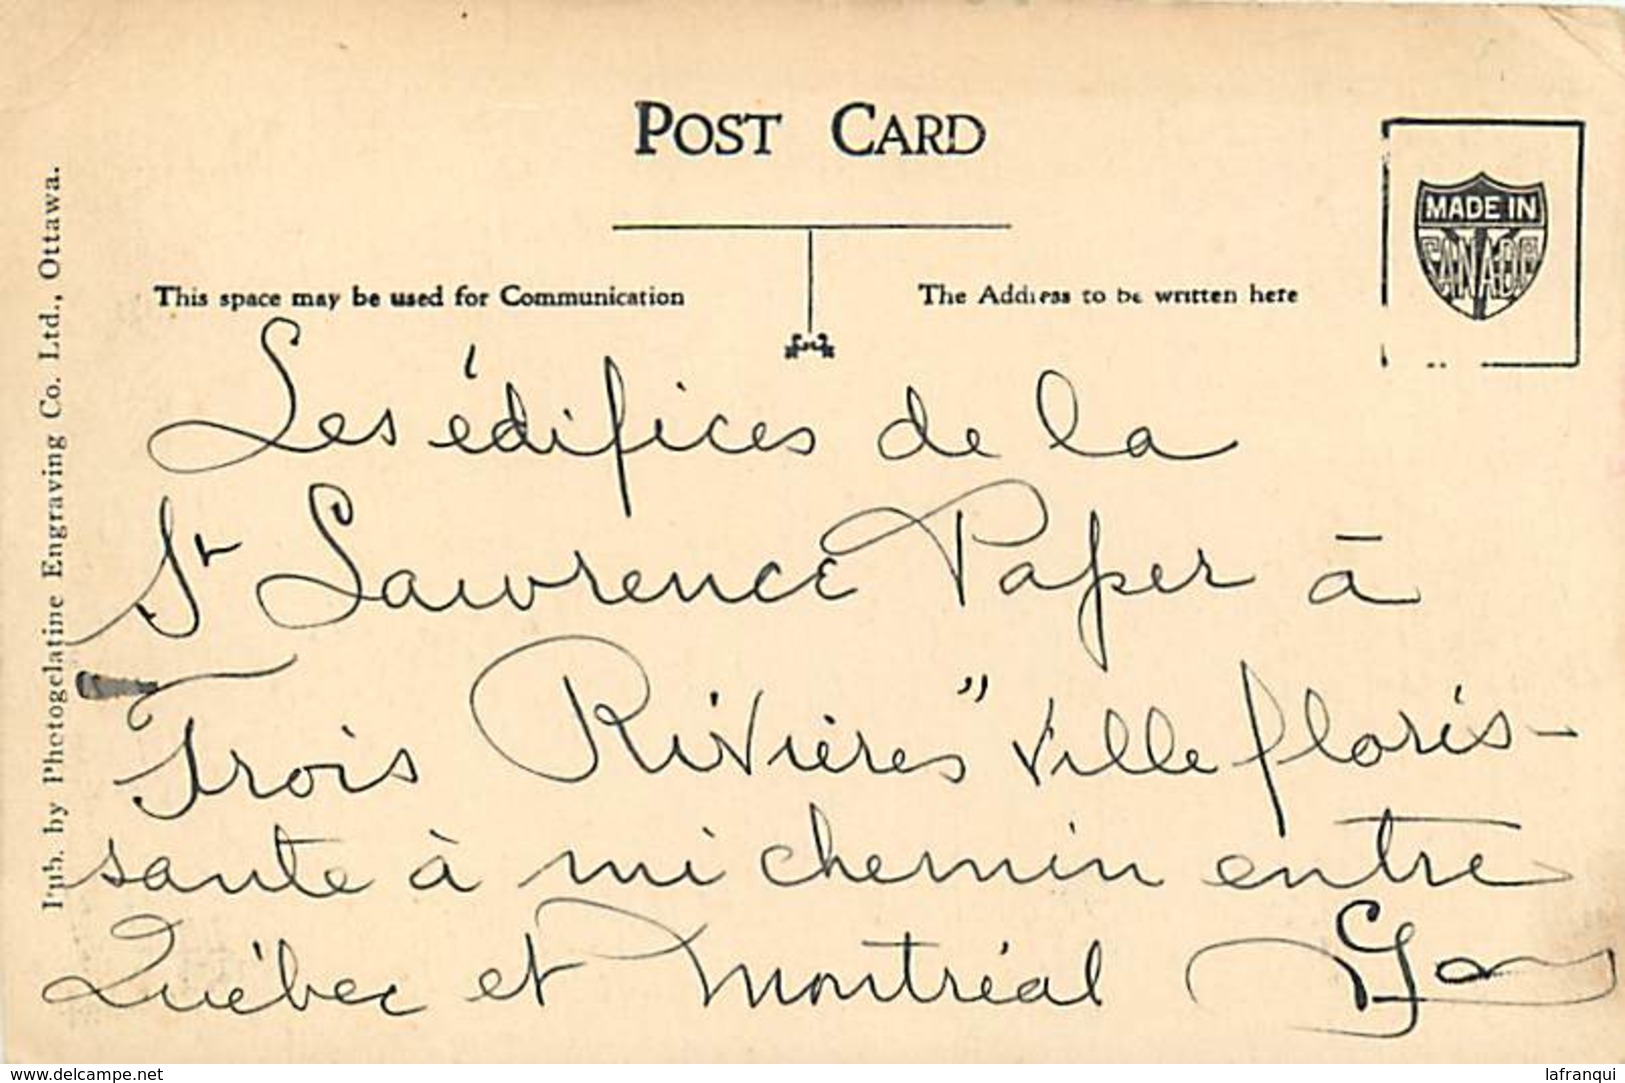 POST CARD
MADE IN
CANADA
This space may be used for Communication
The Address to be written here
Pub. by Photogelatine Engraving Co. Ltd., Ottawa.
Les édifices de la
St Lawrence Paper à
Trois Rivières " ville floris-
sante à mi chemin entre
Québec et Montréal
www.delcampe.net
lafranqui